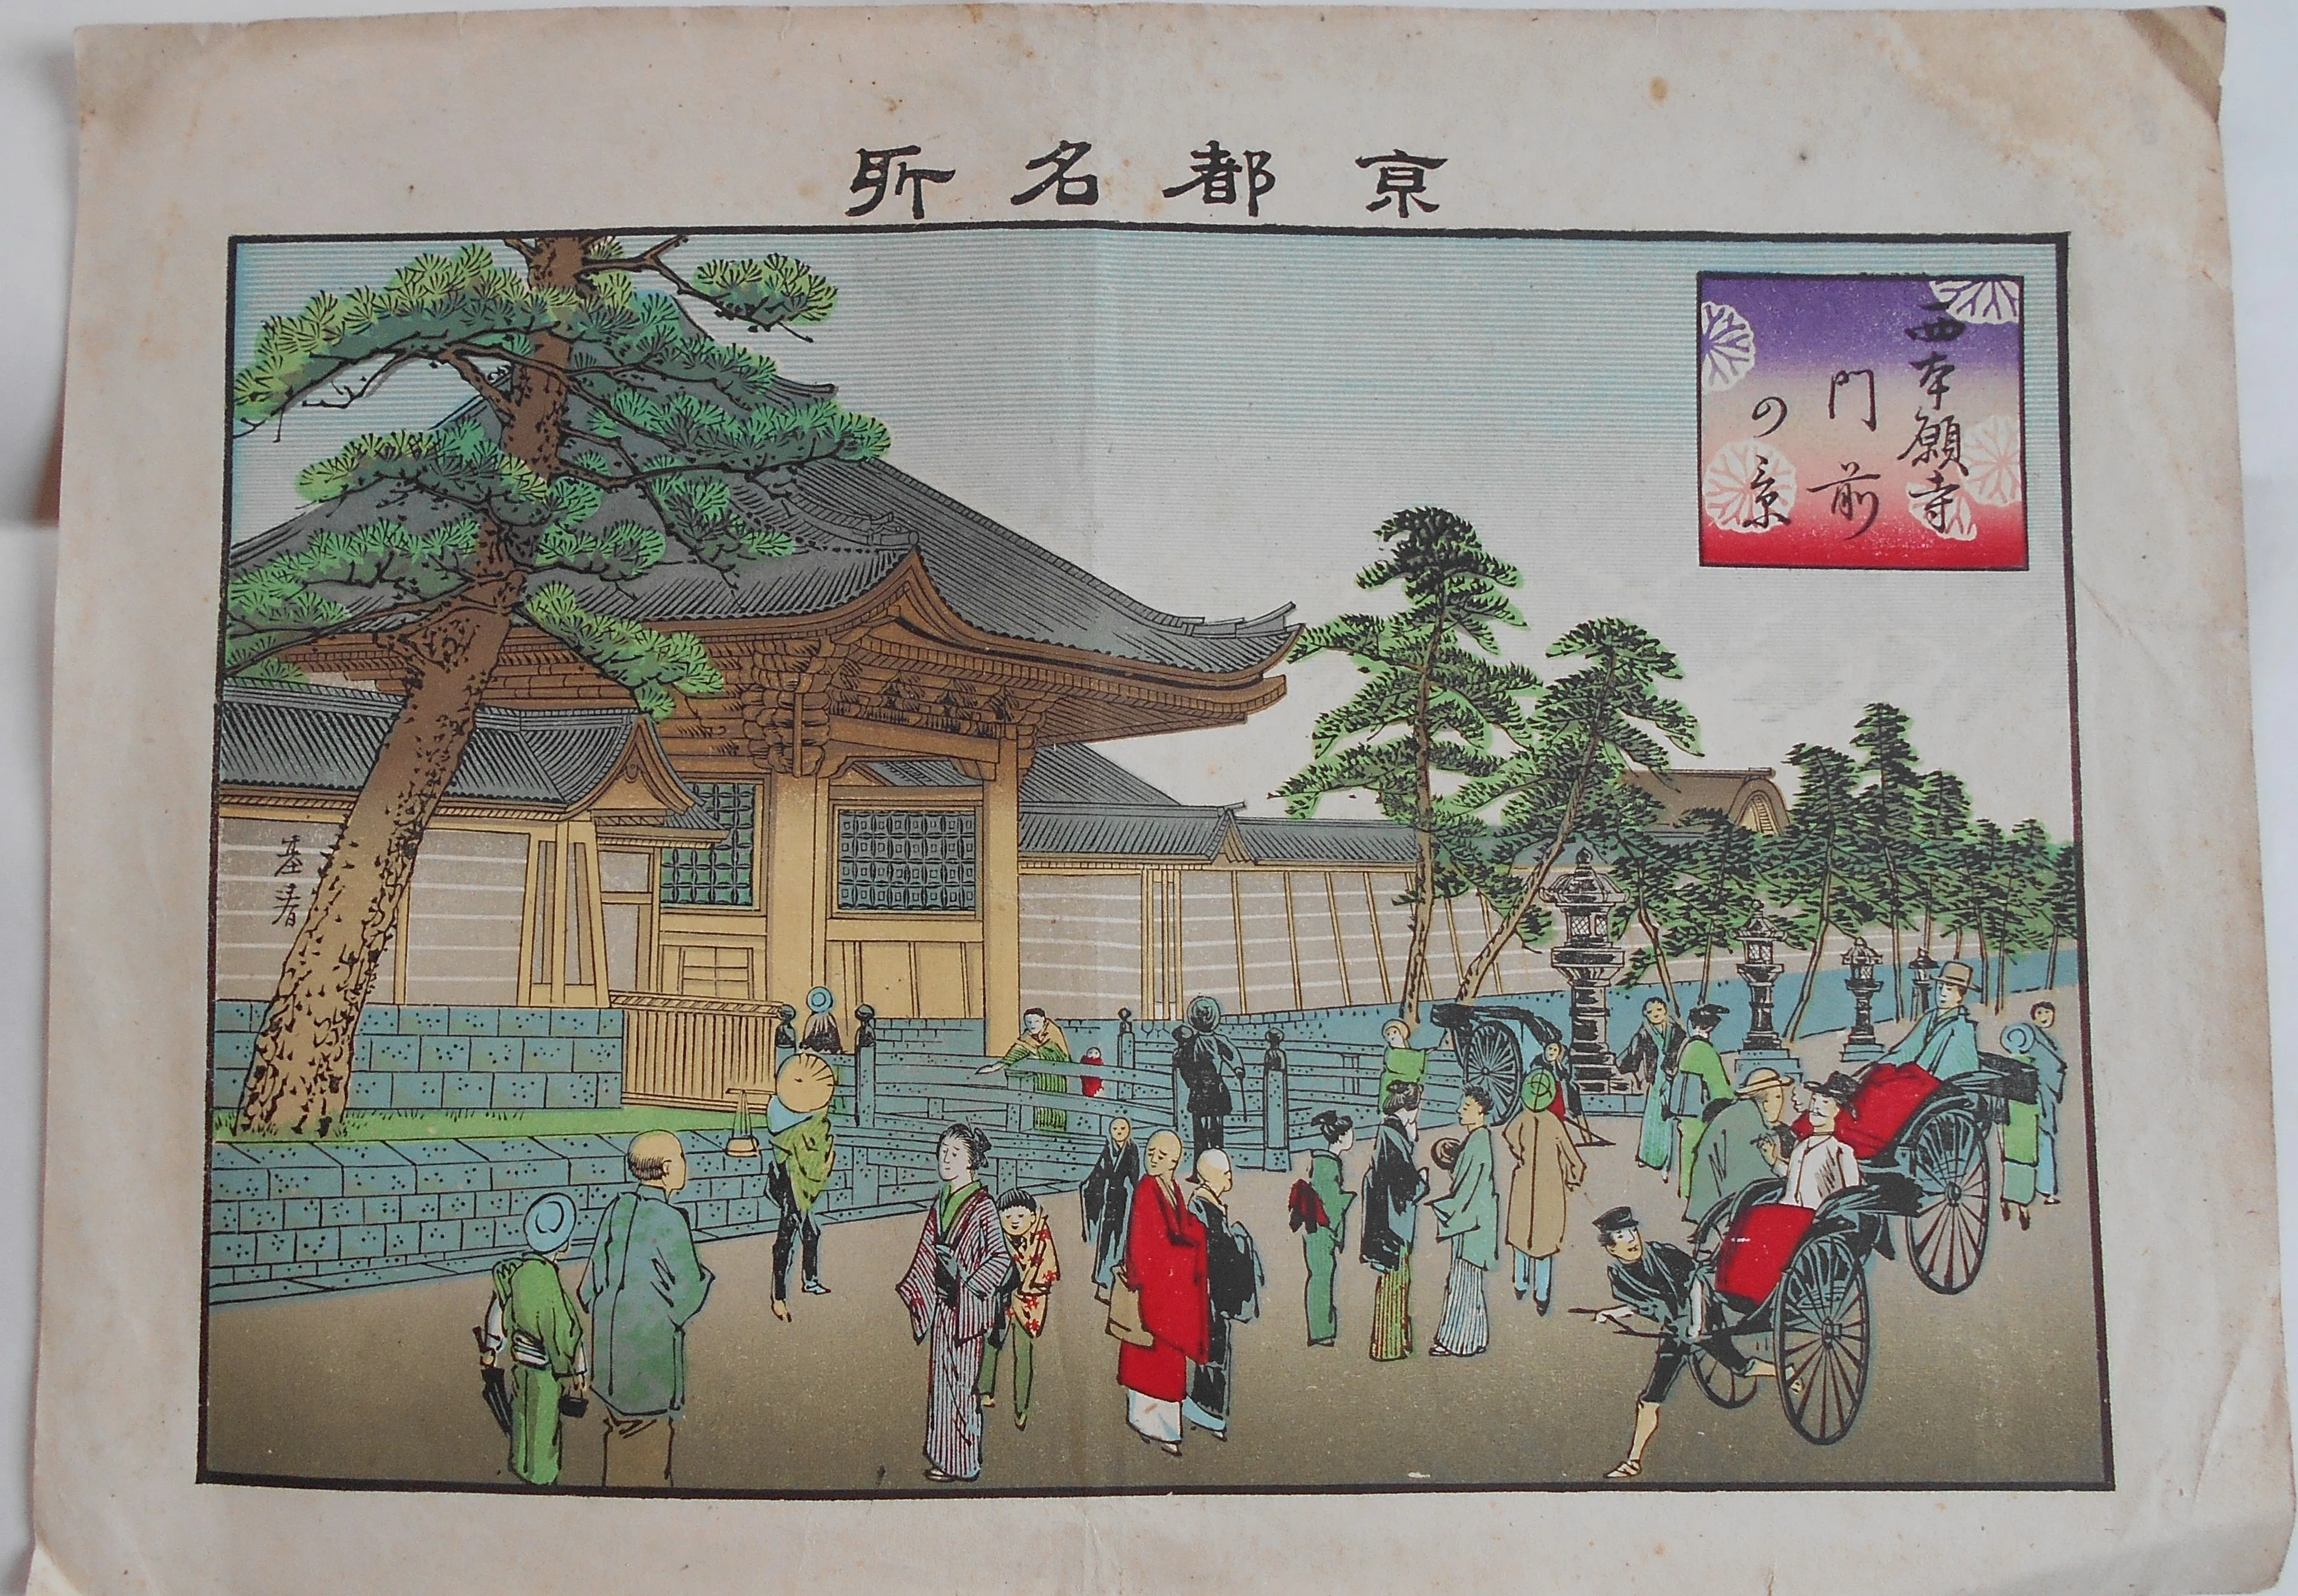 京都名所
西本願寺
門前
の景